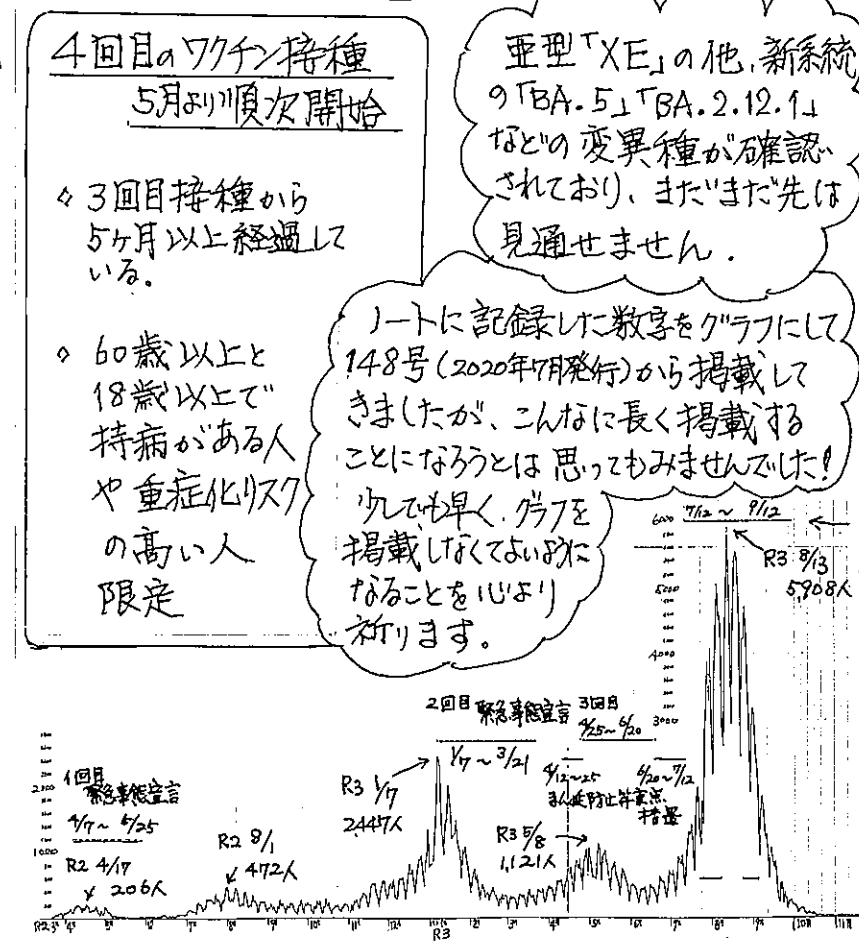 4回目のワクチン接種
5月より順次開始
◇ 3回目接種から
5ヶ月以上経過して
いる。
◇ 60歳以上と
18歳以上で
持病がある人
や重症化リスク
の高い人
限定
亜型「XE」の他、新系統
の「BA.5」「BA.2.12.1」
などの変異種が確認
されており、まだまだ先は
見通せません.
ノートに記録した数字をグラフにして
148号(2020年7月発行)から掲載して
きましたが、こんなに長く掲載する
ことになろうとは思ってもみませんでした!
少しでも早く、グラフを
掲載しなくてよいように
なることを心より
祈ります。
6000
7/12 ~ 9/12
R3 8/13
5,908人
5000
4000
3000
2回目 緊急事態宣言
1/7 ~ 3/21
3回目
4/25~6/20
4/12~25
6/20~7/12
まん延防止等重点
措置
R3 1/7
2,447人
R3 5/8
1,121人
2000
1回目
緊急事態宣言
4/7 ~ 5/25
1000
R2 4/17
206人
R2 8/1
472人
R2 3月 4月 5月 6月 7月 8月 9月 10月 11月 12月 1月 2月 3月 4月 5月 6月 7月 8月 9月 10月 11月
R3